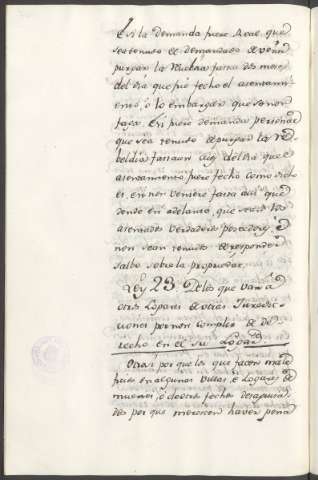 E si la demanda fuere Real que
sea tenudo el demandado de venir
purgar la Rebeldia fasta dos meses
del dia que fue fecho el asentami-
ento, o lo embargar que se non
faga. E si fuere demanda personal
que sea tenudo de purgar la re-
beldia fasta un mes del dia que el
asentamiento fuere fecho como dicho
es, e si non veniere fasta aqui que
dende en adelante, que sean los
asentados verdaderos posedores, e
non sean tenudos de responder
salbo sobre la propriedat.
Ley 23. De los que van a
otros Logares de otras Jurisdic-
ciones por non complir de de-
recho en el su Logar.
Otrosi por que los que facen male-
ficios en algunas Villas, e Logares de
muertes, o de otros fechos desaguisa-
dos por que merescen haver pena